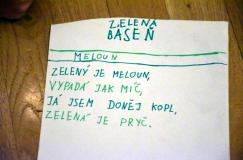 ZELENÁ
BÁSEŇ
MELOUN
ZELENÝ JE MELOUN,
VYPADÁ JAK MÍČ,
JÁ JSEM DONĚJ KOPL,
ZELENÁ JE PRYČ.